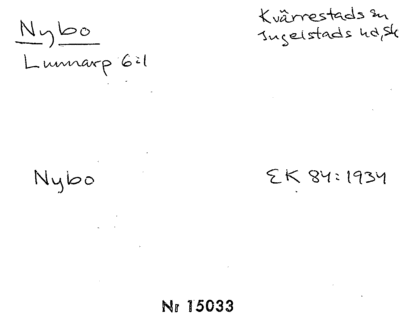 Nybo
Kvärrestads sn
Ingelstads hd, Sk
Lunnarp 6:1
Nybo
EK 84:1934
Nr 15033